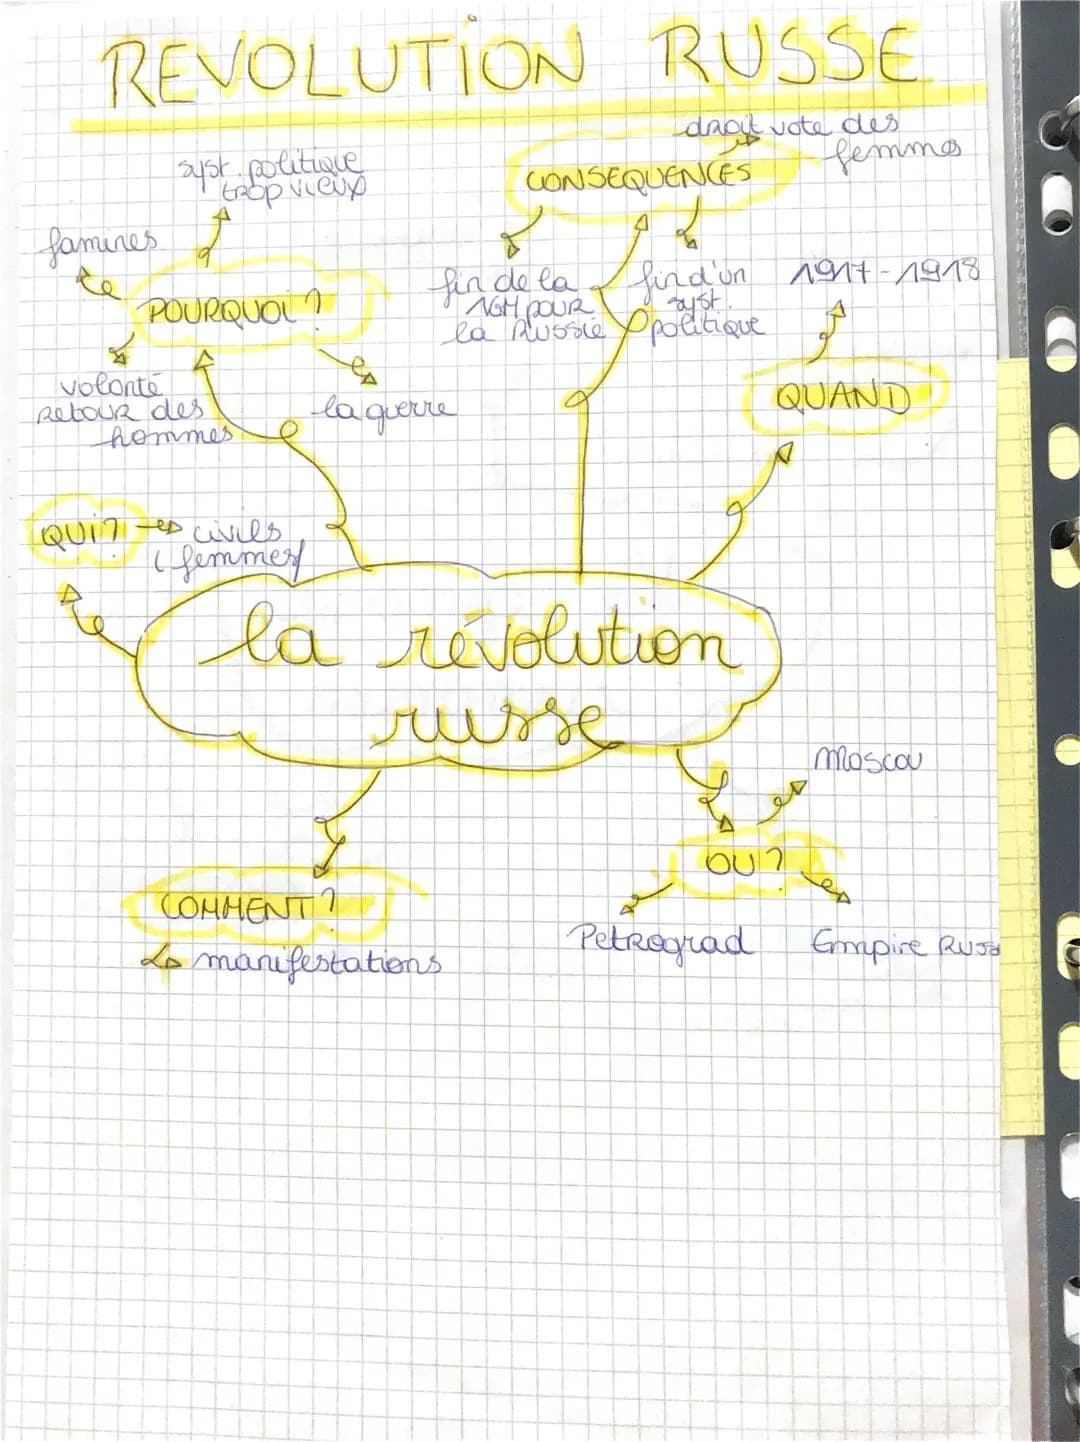 REVOLUTION RUSSE
droit vote des
femmes
CONSEQUENCES
syst. politique
trop vieux
famines
POURQUOI ?
fin de la
1GM pour
la Russie
fin d'un
syst.
politique
1917-1918
QUAND
volonté
retour des
hommes
la guerre
QUI? civils
(femmes)
la révolution
russe
Moscou
OU ?
Petrograd
Empire Russ
COMMENT ?
manifestations